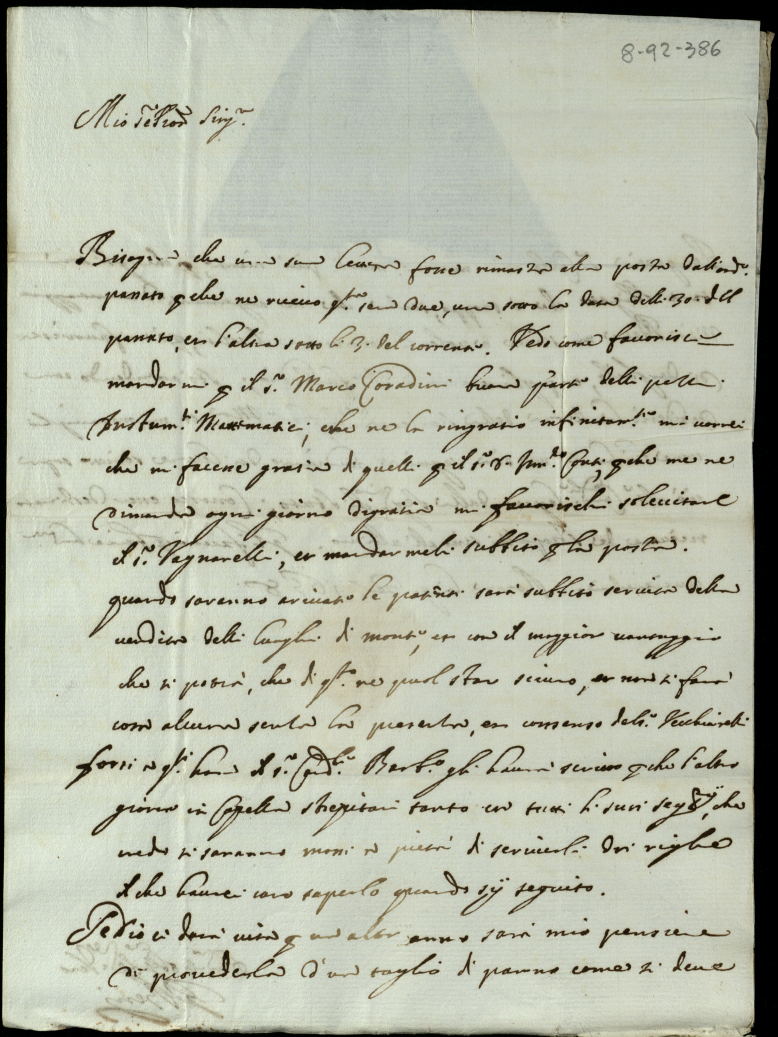 8-92-386
Mio Sig.r
Bisogna che una sua lettera fosse rimasta alla posta
passato p che ne ricevo q.ta sera due, una sotto la data delli 30. dell
passato, et l'altra sotto li 3. del corrente. Vedo come favorisce
mandarmi p il s.r Marco Coradini buona parte delli pezzi
Instrum.ti Mattematici, che ne la ringratio infinitam.te mi vorrei
che mi facesse gratia di quelli p il s.r Conti, p che me ne
dimanda ogni giorno digratia mi favorischi sollecitare
il s.r Vagnarelli, et mandarmeli subbito p la posta.
quando saranno arivate le patenti sarà subbito servita della
vendita delli luoghi di monti, et con il maggior vantaggio
che si potrà, che di q.to ne puol star sicuro, et non si farà
cosa alcuna senza la presenza, et consenso del s.r Vecchiarelli
forsi a q.st' hora il s.r Card.le Barb.o gli haverà scritto p che l'altro
giorno in Capella strepitai tanto con tutti li suoi che
credo si saranno mossi a pietà di scriverli doi righe
il che haverei caro saperlo quando sij seguito.
Se Dio ci darà vita p un altr anno sarà mio pensiero
di provederla d'un taglio di panno come si deve